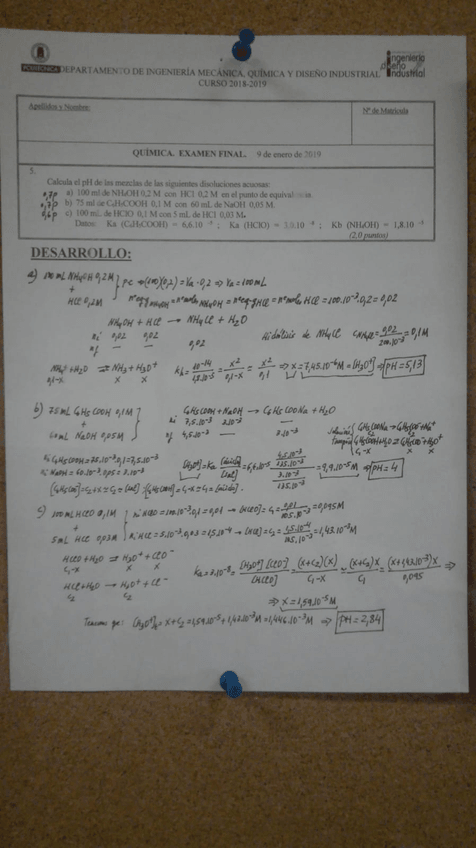 POLITÉCNICA
DEPARTAMENTO DE INGENIERÍA MECÁNICA, QUÍMICA Y DISEÑO INDUSTRIAL
CURSO 2018-2019
ingeniería
diseño
industrial
Apellidos y Nombre:
Nº de Matrícula
QUÍMICA. EXAMEN FINAL. 9 de enero de 2019
5.
Calcula el pH de las mezclas de las siguientes disoluciones acuosas:
0,7p a) 100 ml de NH4OH 0,2 M con HCl 0,2 M en el punto de equivalencia.
0,7p b) 75 ml de C6H5COOH 0,1 M con 60 mL de NaOH 0,05 M.
0,6p c) 100 mL de HClO 0,1 M con 5 mL de HCl 0,03 M.
Datos: Ka (C6H5COOH) = 6,6.10⁻⁵ ; Ka (HClO) = 3.0.10⁻⁸ ; Kb (NH4OH) = 1,8.10⁻⁵
(2,0 puntos)
DESARROLLO:
a) 100 mL NH4OH 0,2M
+
HCl 0,2M
pe → (100)(0,2) = Va · 0,2 ⇒ Va = 100 mL
nºeq-g NH4OH = nºmoles NH4OH = nºeq-g HCl = nºmoles HCl = 100.10⁻³.0,2 = 0,02
NH4OH + HCl → NH4Cl + H2O
ni 0,02 0,02
nf — — 0,02
Hidrólisis de NH4Cl C NH4Cl = 0,02/200.10⁻³ = 0,1M
NH4⁺ + H2O ⇌ NH3 + H3O⁺
0,1-x x x
Kh = 10⁻¹⁴/1,8.10⁻⁵ = x²/0,1-x ≃ x²/0,1 ⇒ x = 7,45.10⁻⁶M = [H3O⁺] ⇒ pH = 5,13
b) 75 mL C6H5COOH 0,1M
+
60 mL NaOH 0,05M
C6H5COOH + NaOH → C6H5COONa + H2O
ni 7,5.10⁻³ 3.10⁻³
nf 4,5.10⁻³ — 3.10⁻³
solución tampón
C6H5COONa → C6H5COO⁻ + Na⁺
C6H5COOH + H2O ⇌ C6H5COO⁻ + H3O⁺
C1-x x x
ni C6H5COOH = 75.10⁻³.0,1 = 7,5.10⁻³
ni NaOH = 60.10⁻³.0,05 = 3.10⁻³
[H3O⁺] = Ka [ácido]/[sal] = 6,6.10⁻⁵ 4,5.10⁻³/135.10⁻³ / 3.10⁻³/135.10⁻³ = 9,9.10⁻⁵M ⇒ pH = 4
[C6H5COO⁻] = C2 + x ≃ C2 = [sal] ; [C6H5COOH] = C1 - x ≃ C1 = [ácido].
c) 100 mL HClO 0,1M
+
5 mL HCl 0,03M
ni HClO = 100.10⁻³.0,1 = 0,01 → [HClO] = C1 = 0,01/105.10⁻³ = 0,095M
ni HCl = 5.10⁻³.0,03 = 1,5.10⁻⁴ → [HCl] = C2 = 1,5.10⁻⁴/105.10⁻³ = 1,43.10⁻³M
HClO + H2O ⇌ H3O⁺ + ClO⁻
C1-x x x
HCl + H2O → H3O⁺ + Cl⁻
C2 C2
Ka = 3.10⁻⁸ = [H3O⁺][ClO⁻]/[HClO] = (x+C2)(x)/C1-x ≃ (x+C2)x/C1 = (x+1,43.10⁻³)x/0,095 ⇒
⇒ x = 1,59.10⁻⁵M
Tenemos que: [H3O⁺]T = x + C2 = 1,59.10⁻⁵ + 1,43.10⁻³M = 1,446.10⁻³M ⇒ pH = 2,84